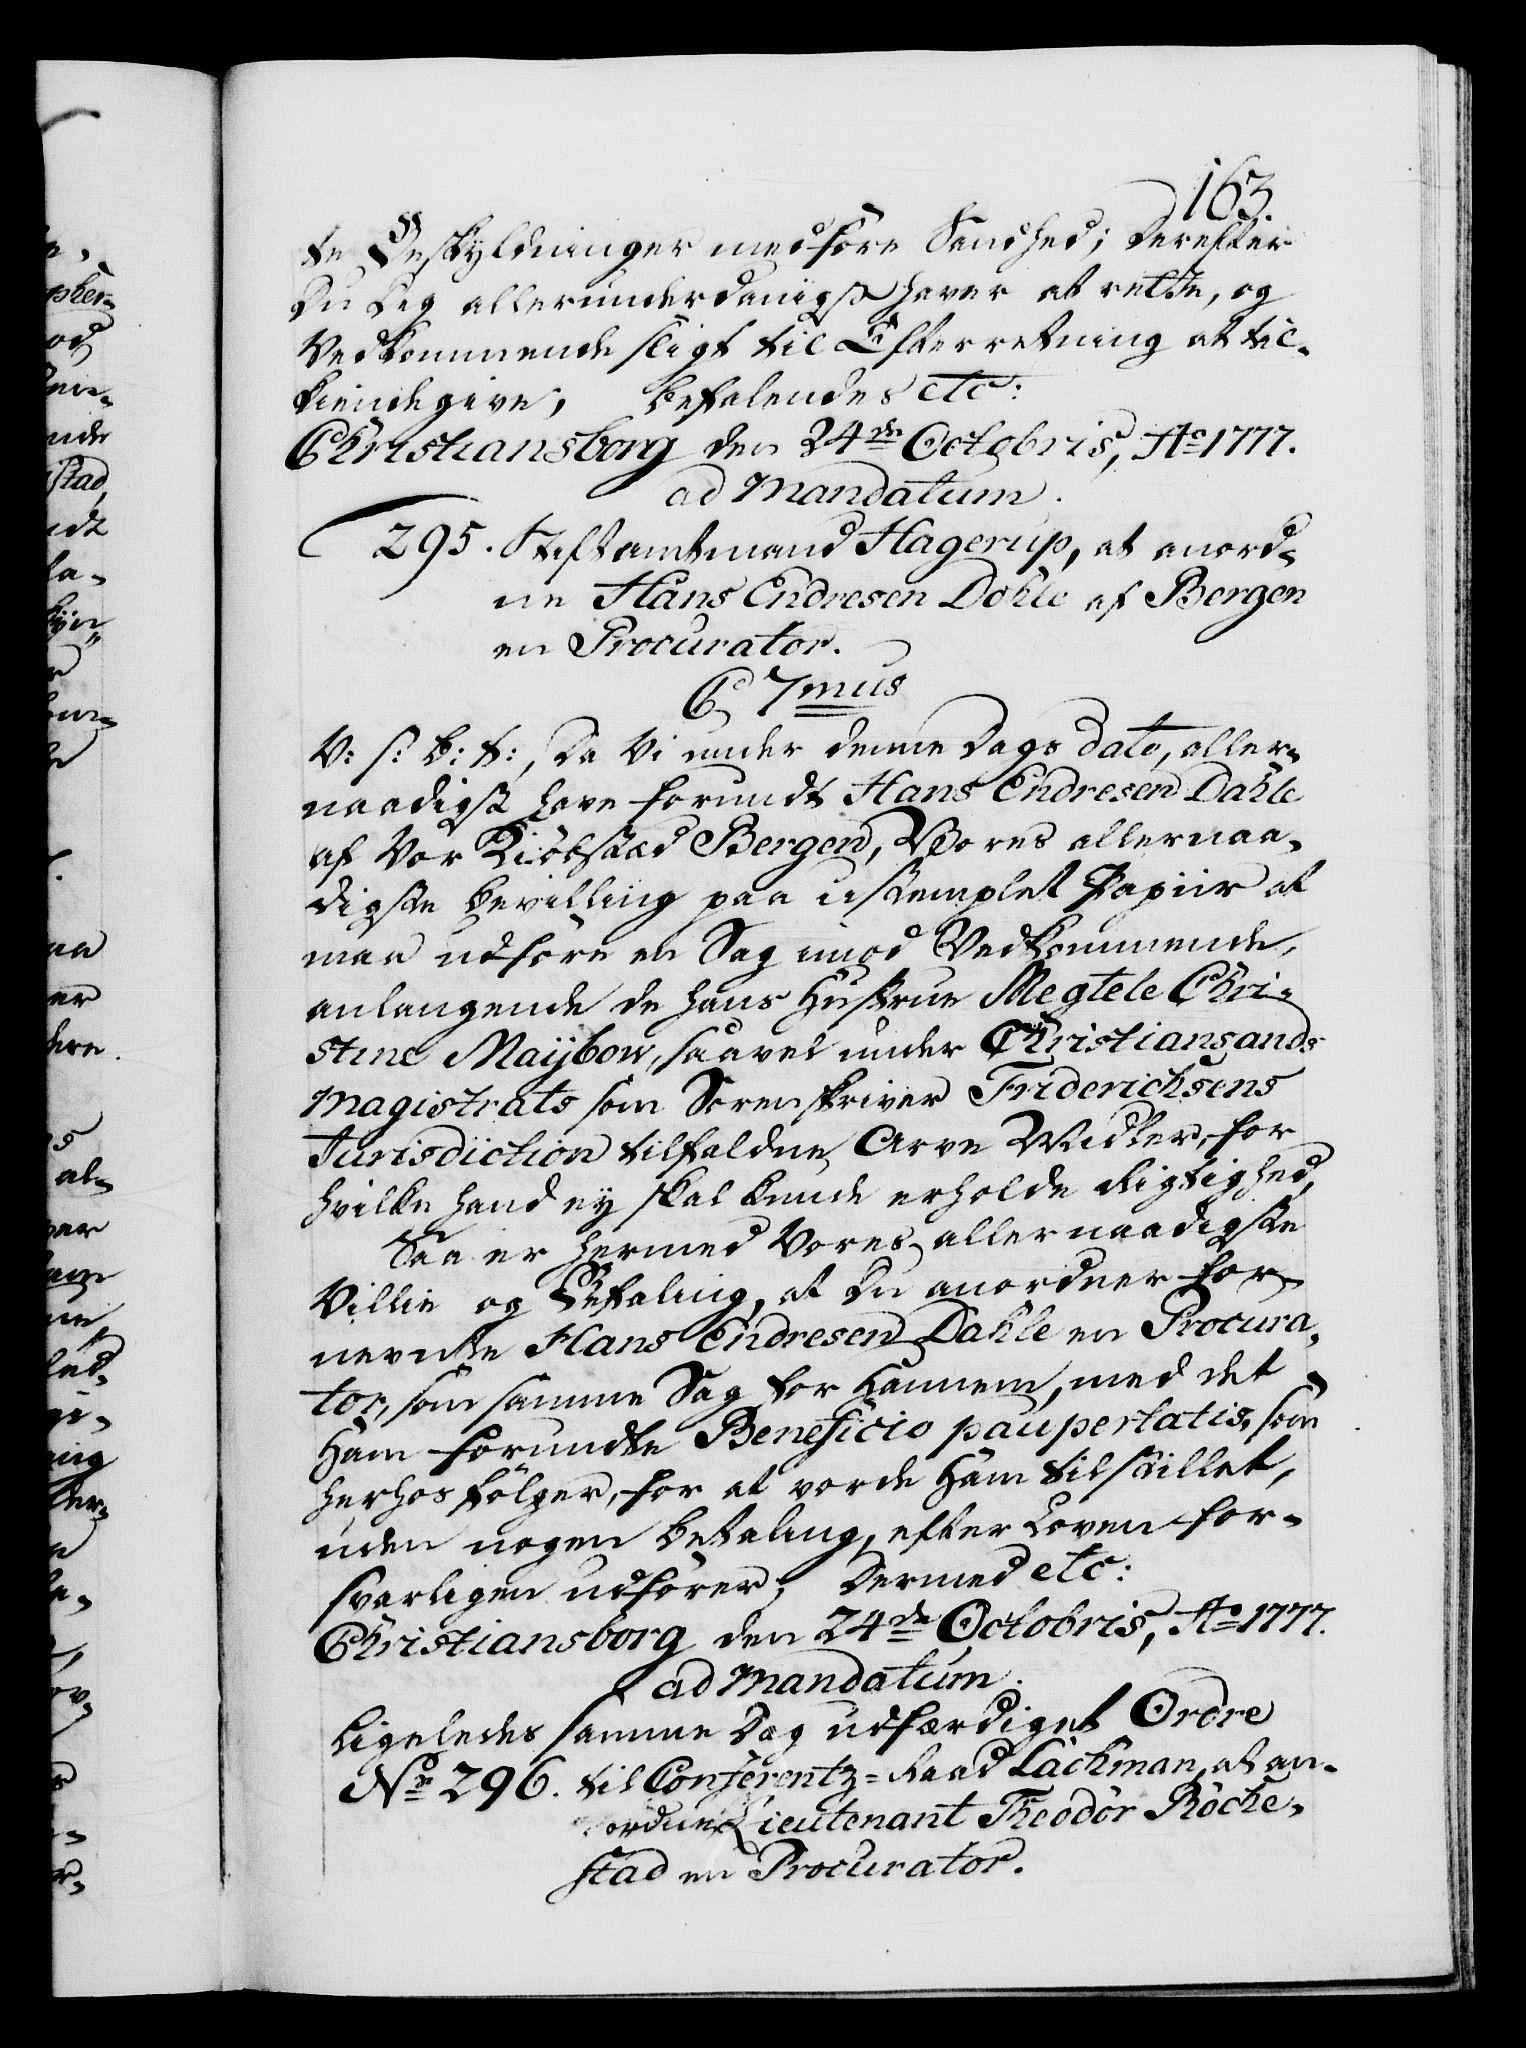 163.
te Beskyldninger medføre Sandhed; Derefter
Du Deg allerunderdanigst haver at rette, og
Vedkommende sligt til Efterretning at til-
kiendegive, Befalendes etc:
Christiansborg den 24de Octobris, Ao 1777.
ad Mandatum.
295. Stiftamtmand Hagerup, at anord-
ne Hans Endresen Dahle af Bergen
en Procurator.
C 7mus
V: s: b: t:, Da Vi under denne Dags Dato, aller-
naadigst have forundt Hans Endresen Dahle
af Vor Kiøbstæd Bergen, Vores allernaa-
digste Bevilling paa ustemplet Papiir at
maa udføre en Sag imod Vedkommende,
anlangende de hans Hustrue Megtele Chri-
stine Maijbow, saavel under Christiansands
Magistrats som Sorenskriver Friderichsens
Jurisdiction tilfaldne Arve Midler, for
hvilke hand ej skal kunde erholde Rigtighed,
Saa er hermed Vores allernaadigste
Villie og Befaling, at Du anordner for-
nevnte Hans Endresen Dahle en Procura-
tor, som samme Sag for Hannem, med det
Ham forundte Beneficio paupertatis, som
herhos følger, for at vorde Ham tilstillet,
uden nogen Betaling, efter Loven for-
svarligen udfører; Dermed etc:
Christiansborg den 24de Octobris, Ao 1777.
ad Mandatum.
Ligeledes samme Dag udfærdiget Ordre
No 296. til Conferentz-Raad Lachman, at an-
ordne Lieutenant Theodor Röche-
stad en Procurator.